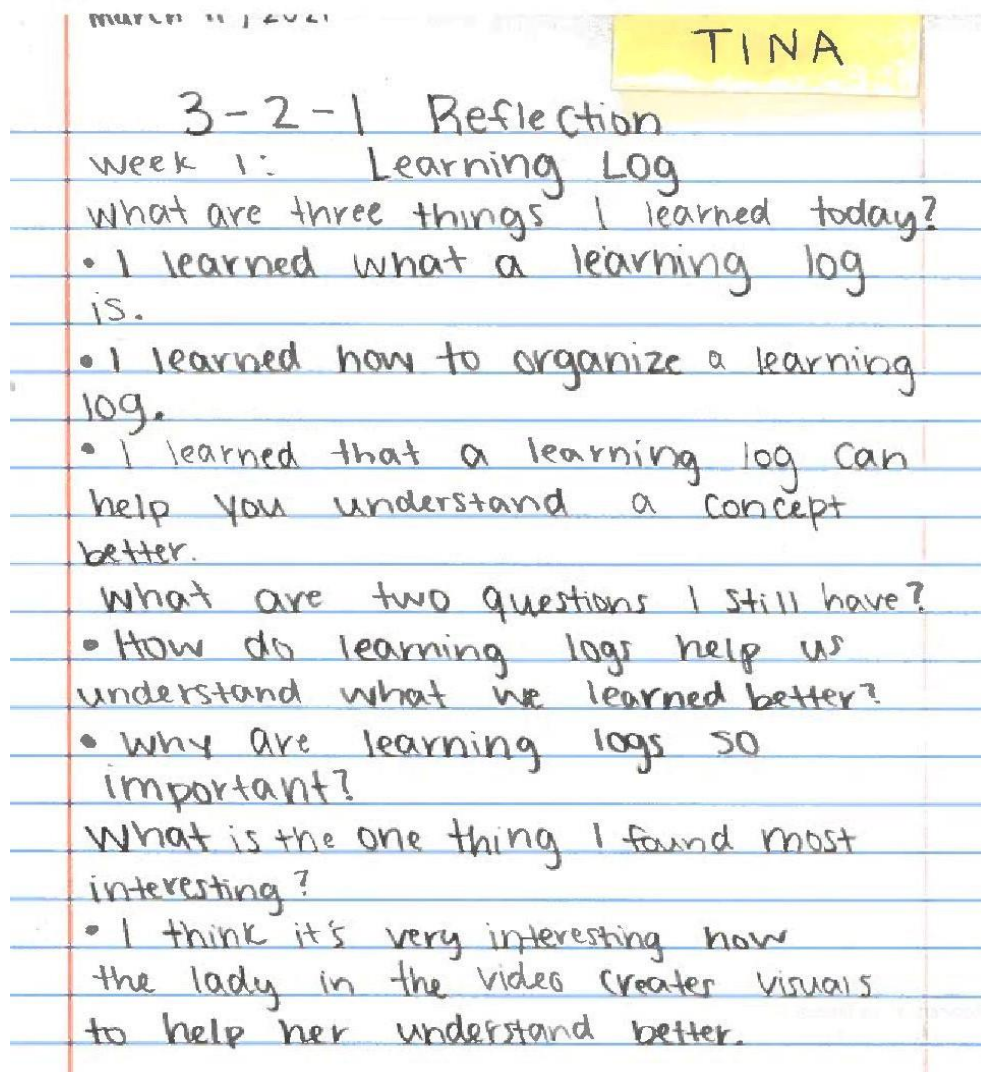 TINA
3-2-1 Reflection
week 1: Learning Log
what are three things I learned today?
• I learned what a learning log
is.
• I learned how to organize a learning
log.
• I learned that a learning log can
help you understand a concept
better.
what are two questions I still have?
• How do learning logs help us
understand what we learned better?
• Why are learning logs so
important?
What is the one thing I found most
interesting?
• I think it's very interesting how
the lady in the video creates visuals
to help her understand better.